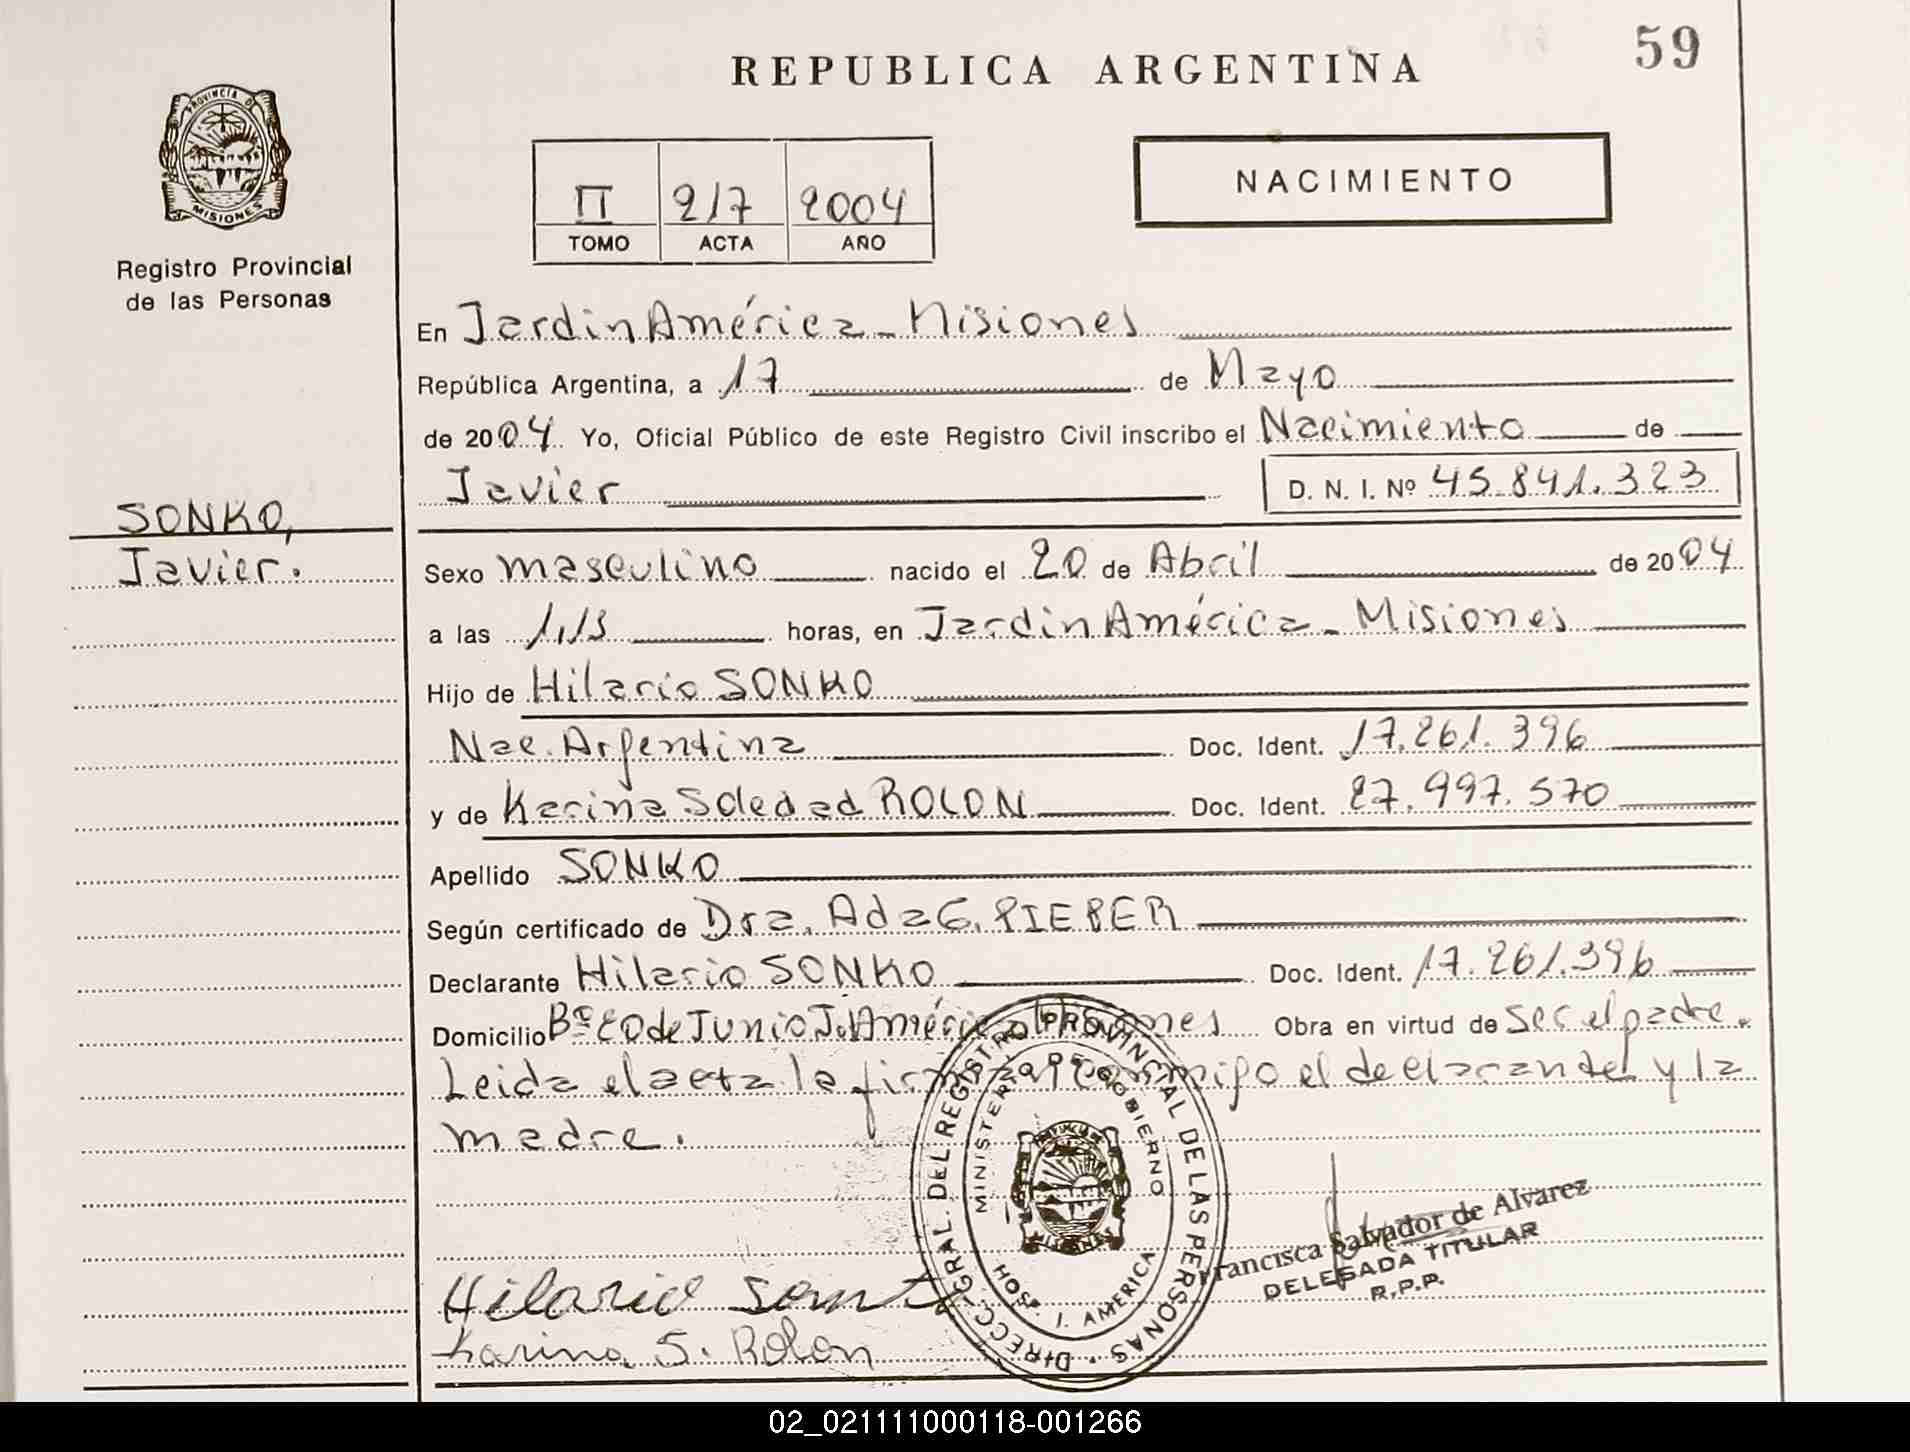 59
REPUBLICA ARGENTINA
PROVINCIA D
MISIONES
Registro Provincial
de las Personas
II 217 2004
TOMO ACTA AÑO
NACIMIENTO
En Jardin América - Misiones
República Argentina, a 17 de Mayo
de 2004 Yo, Oficial Público de este Registro Civil inscribo el Nacimiento de
Javier D. N. I. Nº 45.841.323
SONKO,
Javier.
Sexo masculino nacido el 20 de Abril de 2004
a las 1,13 horas, en Jardin América - Misiones
Hijo de Hilario SONKO
Nac. Argentina Doc. Ident. 17.261.396
y de Karina Soledad ROLON Doc. Ident. 27.997.570
Apellido SONKO
Según certificado de Dra. Ada G. PIEPER
Declarante Hilario SONKO Doc. Ident. 17.261.396
Domicilio Bº 20 de Junio J. América Misiones Obra en virtud de ser el padre.
Leida el acta la firman conmigo el declarante y la
madre.
DIRECC. GRAL. DEL REGISTRO PROVINCIAL DE LAS PERSONAS
MINISTERIO DE GOBIERNO
HOSP. J. AMERICA
Francisca Salvador de Alvarez
DELEGADA TITULAR
R.P.P.
Hilario
Karina S. Rolon
02_021111000118-001266